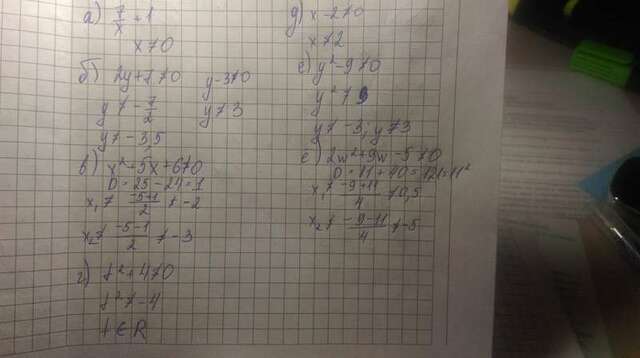 а) 7/x + 1
x ≠ 0
б) 2y+7≠0 y-3≠0
y ≠ -7/2 y ≠ 3
y ≠ -3,5
в) x²+5x+6≠0
D = 25-24=1
x₁ ≠ (-5+1)/2 ≠ -2
x₂ ≠ (-5-1)/2 ≠ -3
г) t²+4≠0
t² ≠ -4
t ∈ R
д) x-2≠0
x ≠ 2
е) y²-9≠0
y² ≠ 9
y ≠ -3; y ≠ 3
є) 2w²+9w-5≠0
D = 81+40=121=11²
x₁ ≠ (-9+11)/4 ≠ 0,5
x₂ ≠ (-9-11)/4 ≠ -5